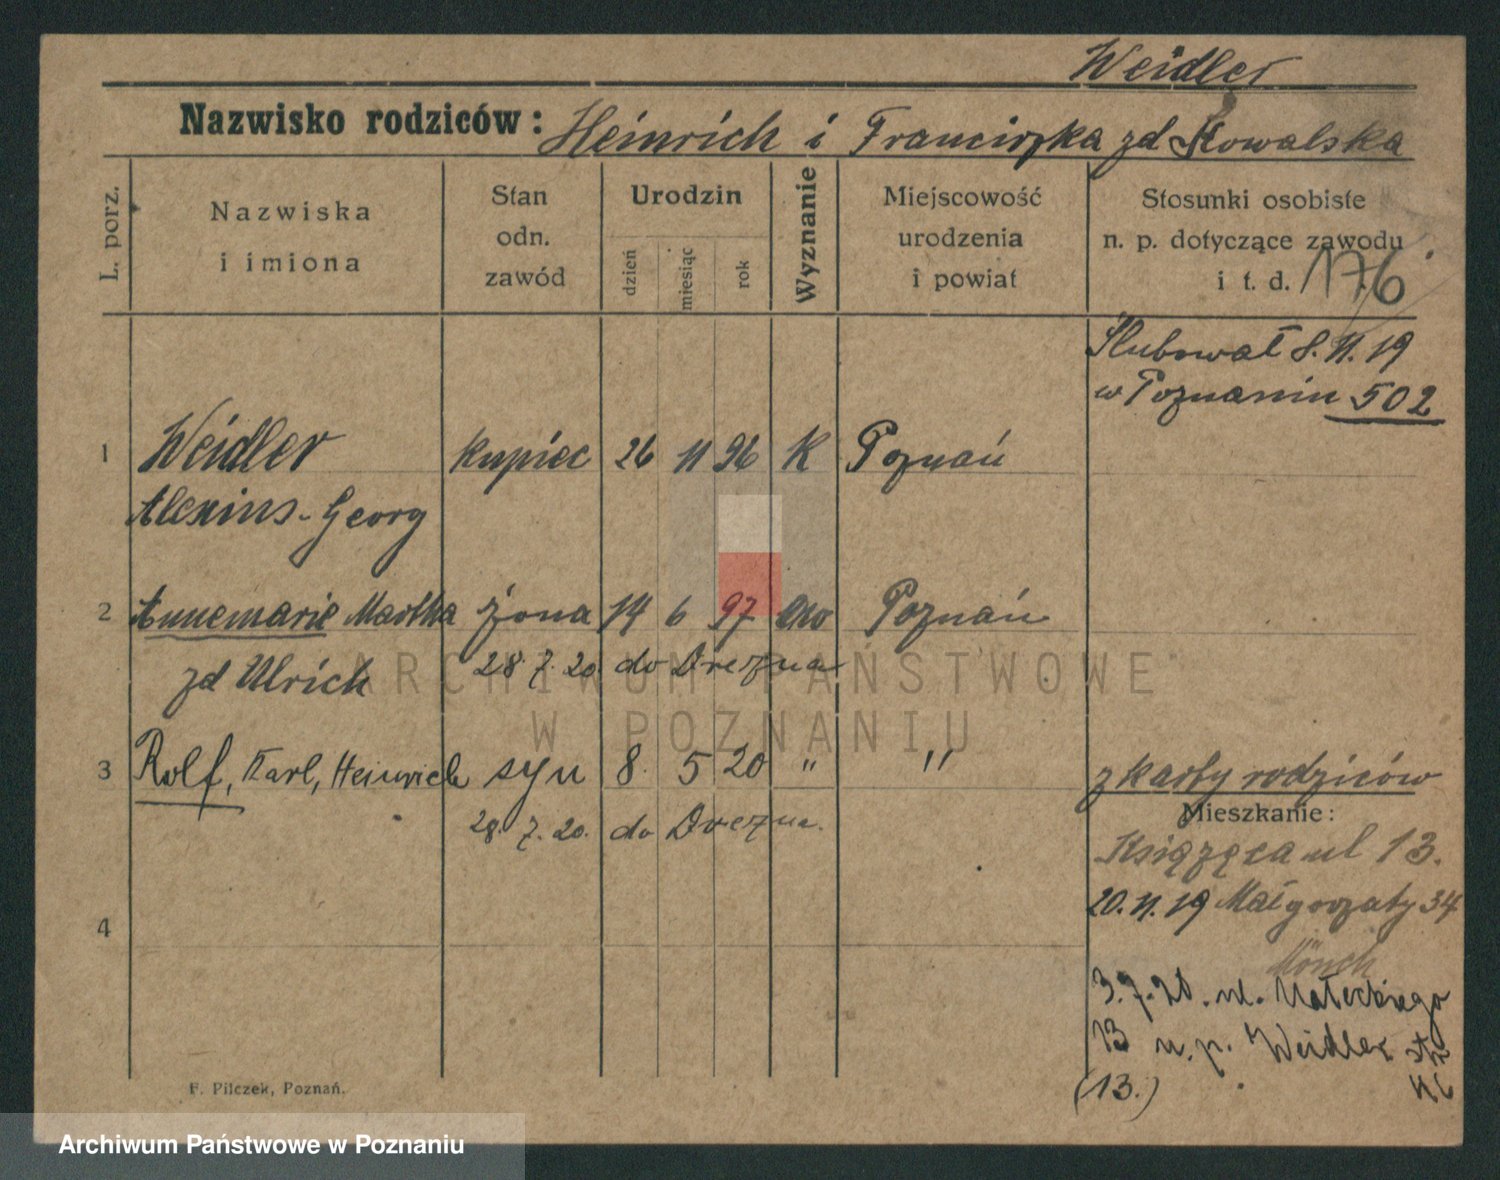 Weidler
Nazwisko rodziców: Heinrich i Franciszka zd Kowalska
L. porz.
Nazwiska i imiona
Stan odn. zawód
Urodzin
dzień
miesiąc
rok
Wyznanie
Miejscowość urodzenia i powiat
Stosunki osobiste n. p. dotyczące zawodu i t. d.
176
Ślubował 8. 11. 19
w Poznaniu 502
1 Weidler kupiec 26 11 96 K Poznań
Alexius-Georg
2 Annemarie Martha żona 14 6 97 Poznań
zd Ulrich 28. 7. 20 do Drezna
3 Rolf, Karl, Heinrich syn 8. 5 20 " "
z karty rodziców
28. 7. 20. do Drezna.
Mieszkanie:
Książęca ul 13.
4
20. 11. 19 Małgorzaty 34
Mönch
3. 7. 20. ul.
13 u. p. Weidler
(13.)
F. Pilczek, Poznań.
ARCHIWUM PAŃSTWOWE
W POZNANIU
Archiwum Państwowe w Poznaniu